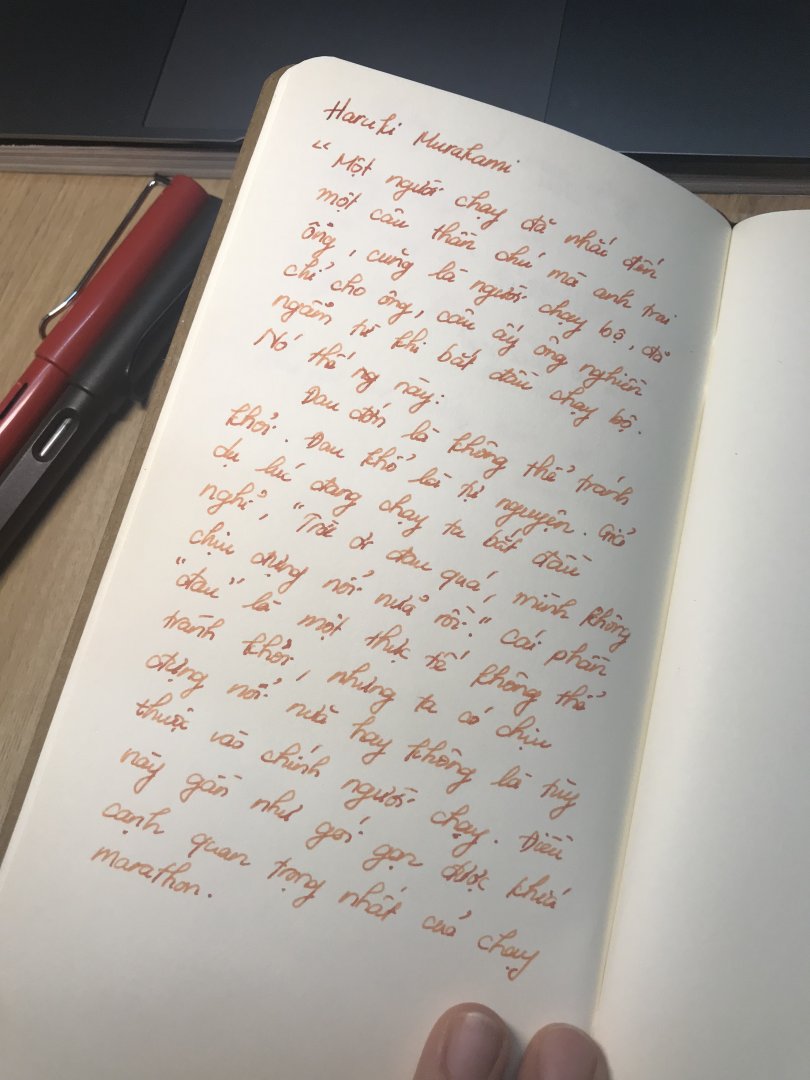 Haruki Murakami
“ Một người chạy đã nhắc đến
một câu thần chú mà anh trai
ông, cũng là người chạy bộ, đã
chỉ cho ông, câu ấy ông nghiền
ngẫm từ khi bắt đầu chạy bộ.
Nó thế ng này:
Đau đớn là không thể tránh
khỏi. Đau khổ là tự nguyện. Giả
dụ lúc đang chạy ta bắt đầu
nghĩ, “Trời ơi đau quá, mình không
chịu đựng nổi nữa rồi.” cái phần
“đau” là một thực tế không thể
tránh khỏi, nhưng ta có chịu
đựng nổi nữa hay không là tùy
thuộc vào chính người chạy. Điều
này gần như gói gọn được khía
cạnh quan trọng nhất của chạy
marathon.